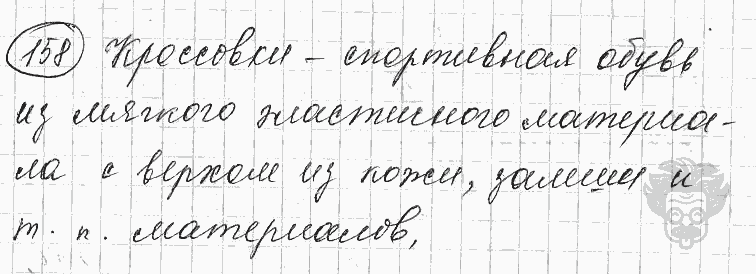 158 Кроссовки – спортивная обувь
из мягкого эластичного материа-
ла с верхом из кожи, замши и
т. п. материалов,